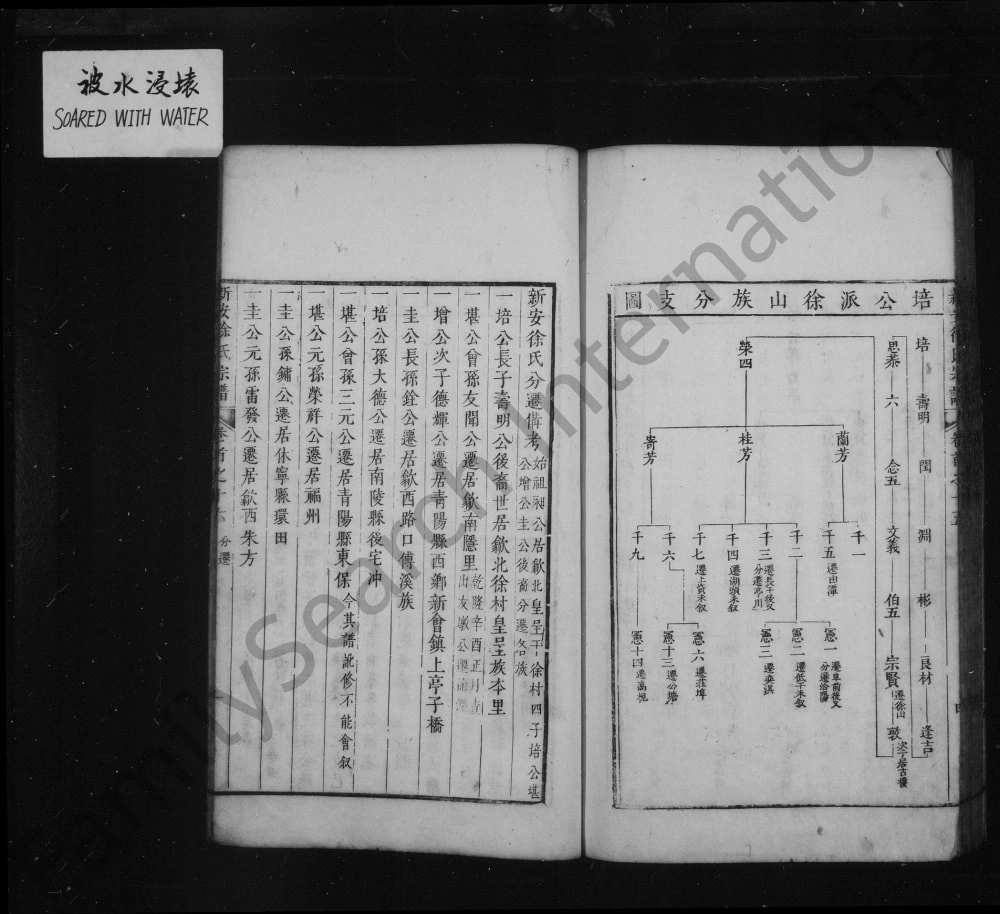 被水浸壞
SOARED WITH WATER
培公派徐山族分支圖
培 壽明 閏 淵 彬 艮材 逢吉
思恭 六 念五 文義 伯五 宗賢 遷徐山 致
榮四
蘭芳
桂芳
寄芳
千一
千五 遷由潭
千二
千三
千四 遷湖頭未叙
千七
千六
千九
憲一
憲二 遷低干未叙
憲三 遷奕淇
憲六 遷莊埠
憲十三 遷公塘
憲十四 遷高梘
新安徐氏分遷備考 始祖昶公居歙北皇呈干徐村四子培公堪公增公圭公後裔分遷各族
一培公長子壽明公後裔世居歙北徐村皇呈族本里
一堪公曾孫友聞公遷居歙南隱里 乾隆辛酉正月
一增公次子德輝公遷居青陽縣西鄉新會鎮上亭子橋
一圭公長孫銓公遷居歙西路口傅溪族
一培公孫大德公遷居南陵縣後宅冲
一堪公曾孫三元公遷居青陽縣東保 今其譜訛修不能會叙
一堪公元孫榮祥公遷居福州
一圭公孫鏞公遷居休寧縣環田
一圭公元孫雷發公遷居歙西朱方
新安徐氏宗譜 分遷
FamilySearch International